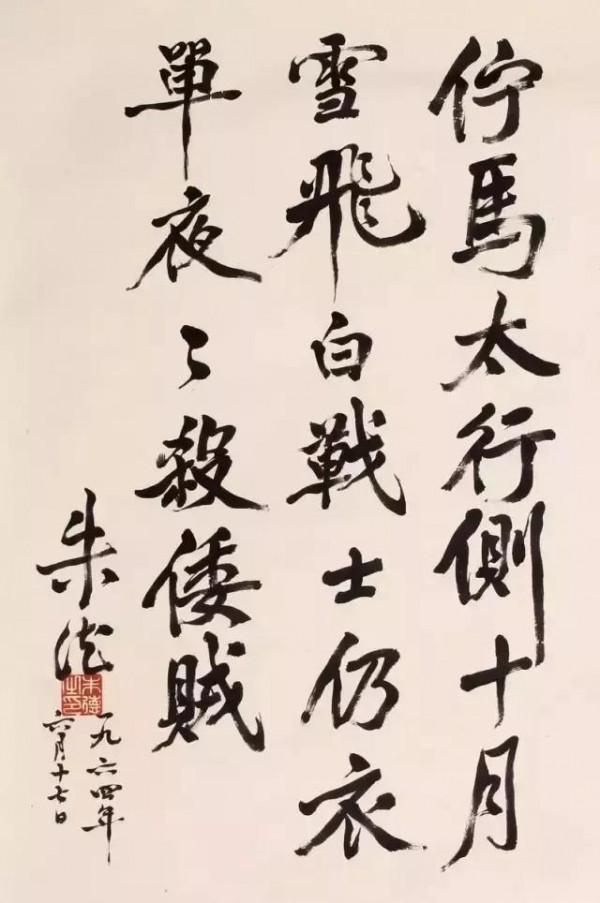 佇馬太行側十月
雪飛白戰士仍衣
單夜〻殺倭賊
朱德
一九六四年
六月十七日
朱德之印